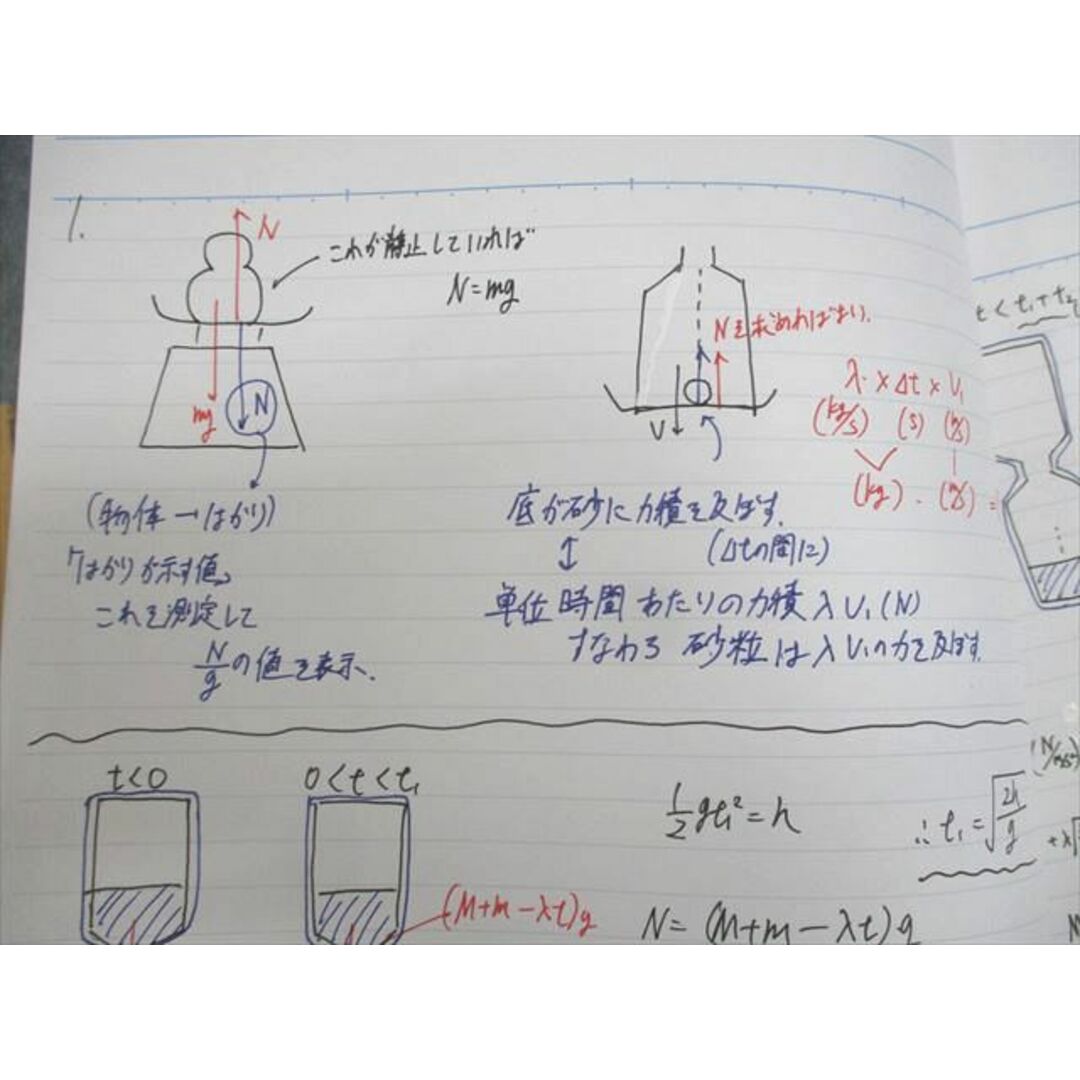 1.
N
これが静止していれば
N=mg
mg
N
(物体→はかり)
「はかりが示す値」
これを測定して
N/g の値を表示.
Nを求めればよい.
V
λ × Δt × V₁
(kg/s) (s) (m/s)
(kg)・(m/s) =
底が砂に力積を及ぼす.
↕ (Δtの間に)
単位時間あたりの力積 λV₁(N)
すなわち 砂粒はλV₁の力を及ぼす.
t < t₁+t₂
t<0
0<t<t₁
(M+m-λt)g
½gt₁²=h
∴ t₁=√(2h/g)
N=(M+m-λt)g